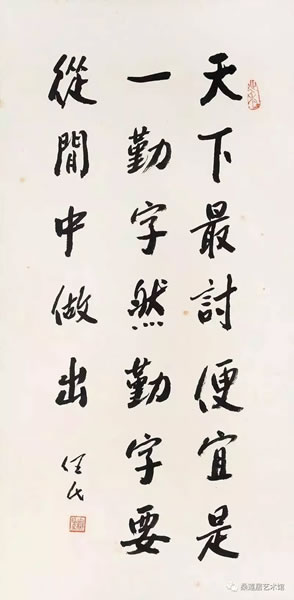 天下最討便宜是
一勤字然勤字要
從閒中做出
任氏
桑蓮居艺术馆